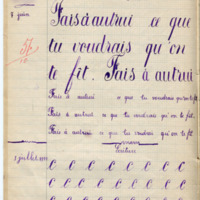 7 juin
Fais à autrui ce que
tu voudrais qu'on
te fît. Fais à autrui
Fais à autrui ce que tu voudrais qu'on te fît
Fais à autrui ce que tu voudrais qu'on te fît.
Fais à autrui ce que tu voudrais qu'on te fît
Écriture
juillet
C C C C C C C
C C C C C C C
C C C C C C C